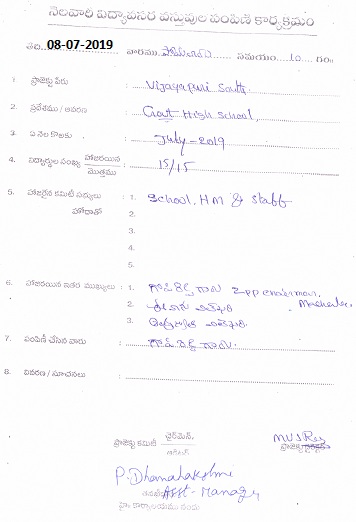 నెలవారి విద్యావసర వస్తువుల పంపిణి కార్యక్రమం
తేది..08-07-2019 వారము సోమవారం సమయం..10... గం.
1. ప్రాజెక్టు పేరు : Vijayapuri South
2. ప్రదేశము / వివరణ : Govt High School,
3. ఏ నెల కొఱకు : July - 2019
4. విద్యార్థుల సంఖ్య హాజరయిన / మొత్తము : 15/15
5. హాజరైన కమిటీ సభ్యులు : 1. School, HM & staff
హోదాతో 2.
3.
4.
5.
6. హాజరయిన ఇతర ముఖ్యులు : 1. Zpp chairman,
2. Macherla
3.
7. పంపిణీ చేసిన వారు :
8. వివరణ / సూచనలు :
ప్రాజెక్టు కమిటీ ఛైర్మెన్,
P. Dhanalakshmi
Asst- Manager